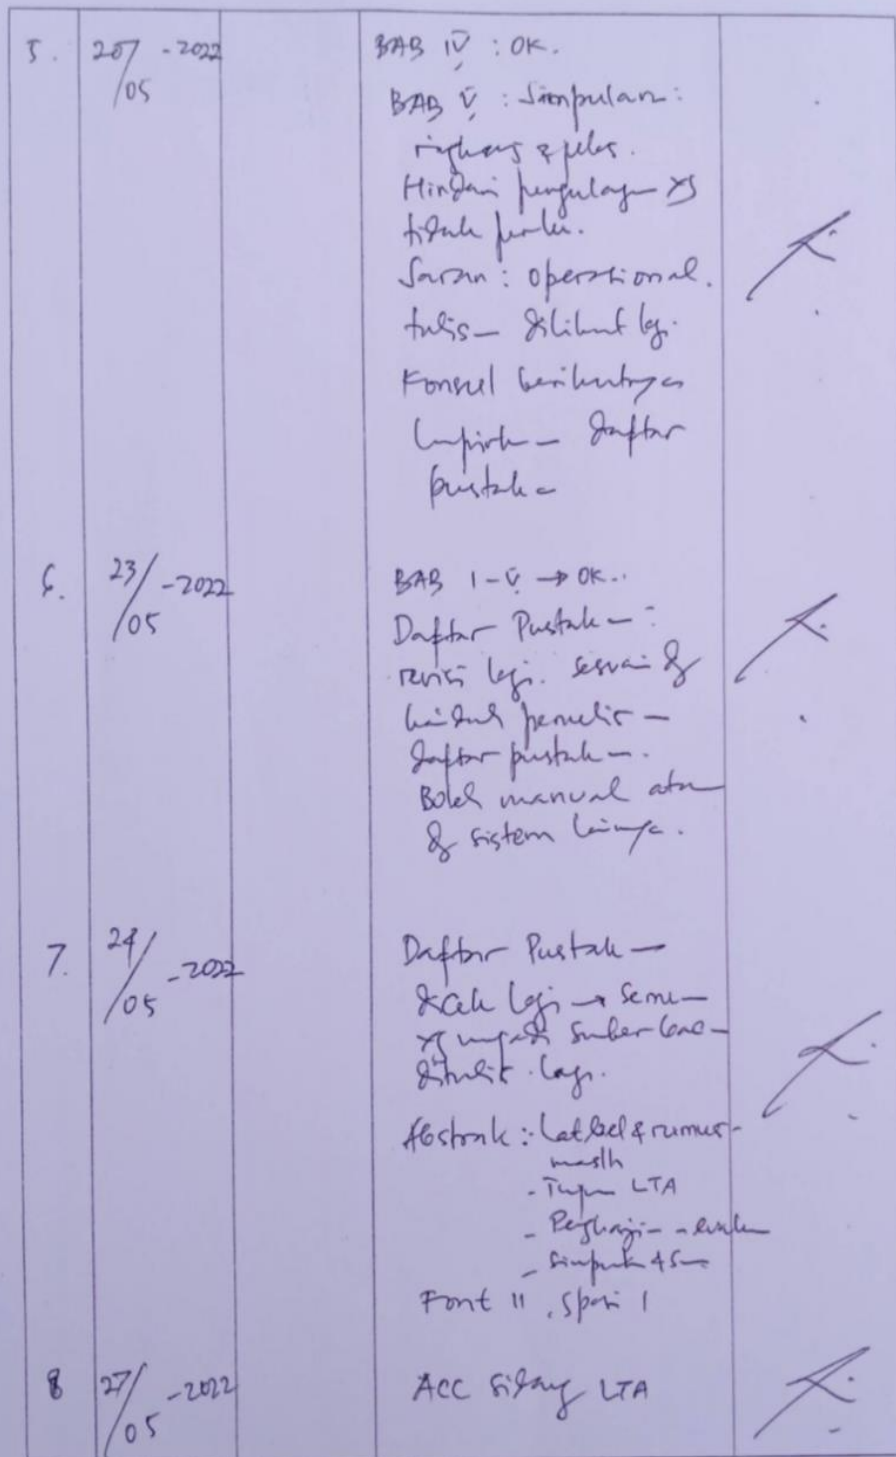 5. 20/05 -2022 BAB IV : OK.
BAB V : Simpulan :
ringkas & jelas.
Hindari pengulangan yg
tidak perlu.
Saran : operasional.
tulis dilihat lagi.
Konsul berikutnya
lampirkan daftar
pustaka
6. 23/05 -2022 BAB I-V → OK..
Daftar Pustaka :
revisi lagi. sesuai dg
kaidah penulisan
daftar pustaka.
Boleh manual atau
dg sistem lainnya.
7. 24/05 -2022 Daftar Pustaka
dicek lagi → semua
yg sumber
ditulis lagi.
Abstrak : Latbel & rumus
maslh
- Tujuan LTA
- Pengkajian - evalu
- Simpulan & Sa
Font 11, spasi 1
8 27/05 -2022 ACC Sidang LTA